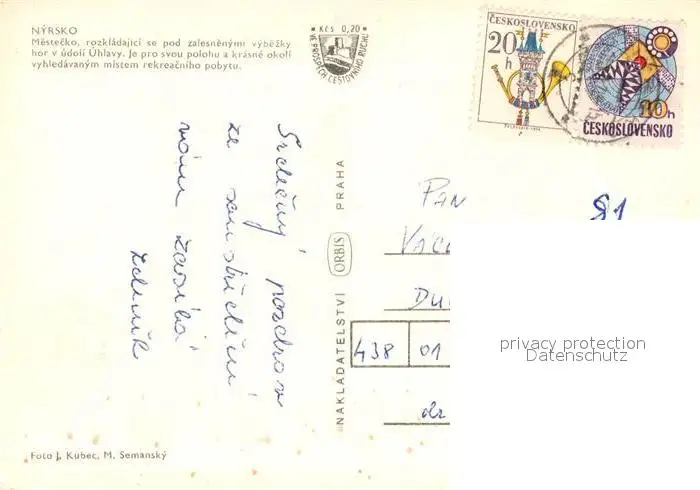 NÝRSKO
Městečko, rozkládající se pod zalesněnými výběžky
hor v údolí Úhlavy. Je pro svou polohu a krásné okolí
vyhledávaným místem rekreačního pobytu.
* Kčs 0,20 *
VE PROSPĚCH CESTOVNÍHO RUCHU
ČESKOSLOVENSKO
20 h
10h
ČESKOSLOVENSKO
Srdečný pozdrav
ze
vám zasílá
Zdeněk
NAKLADATELSTVÍ ORBIS PRAHA
PAN
81
438 01
privacy protection
Datenschutz
Foto J. Kubec, M. Semanský